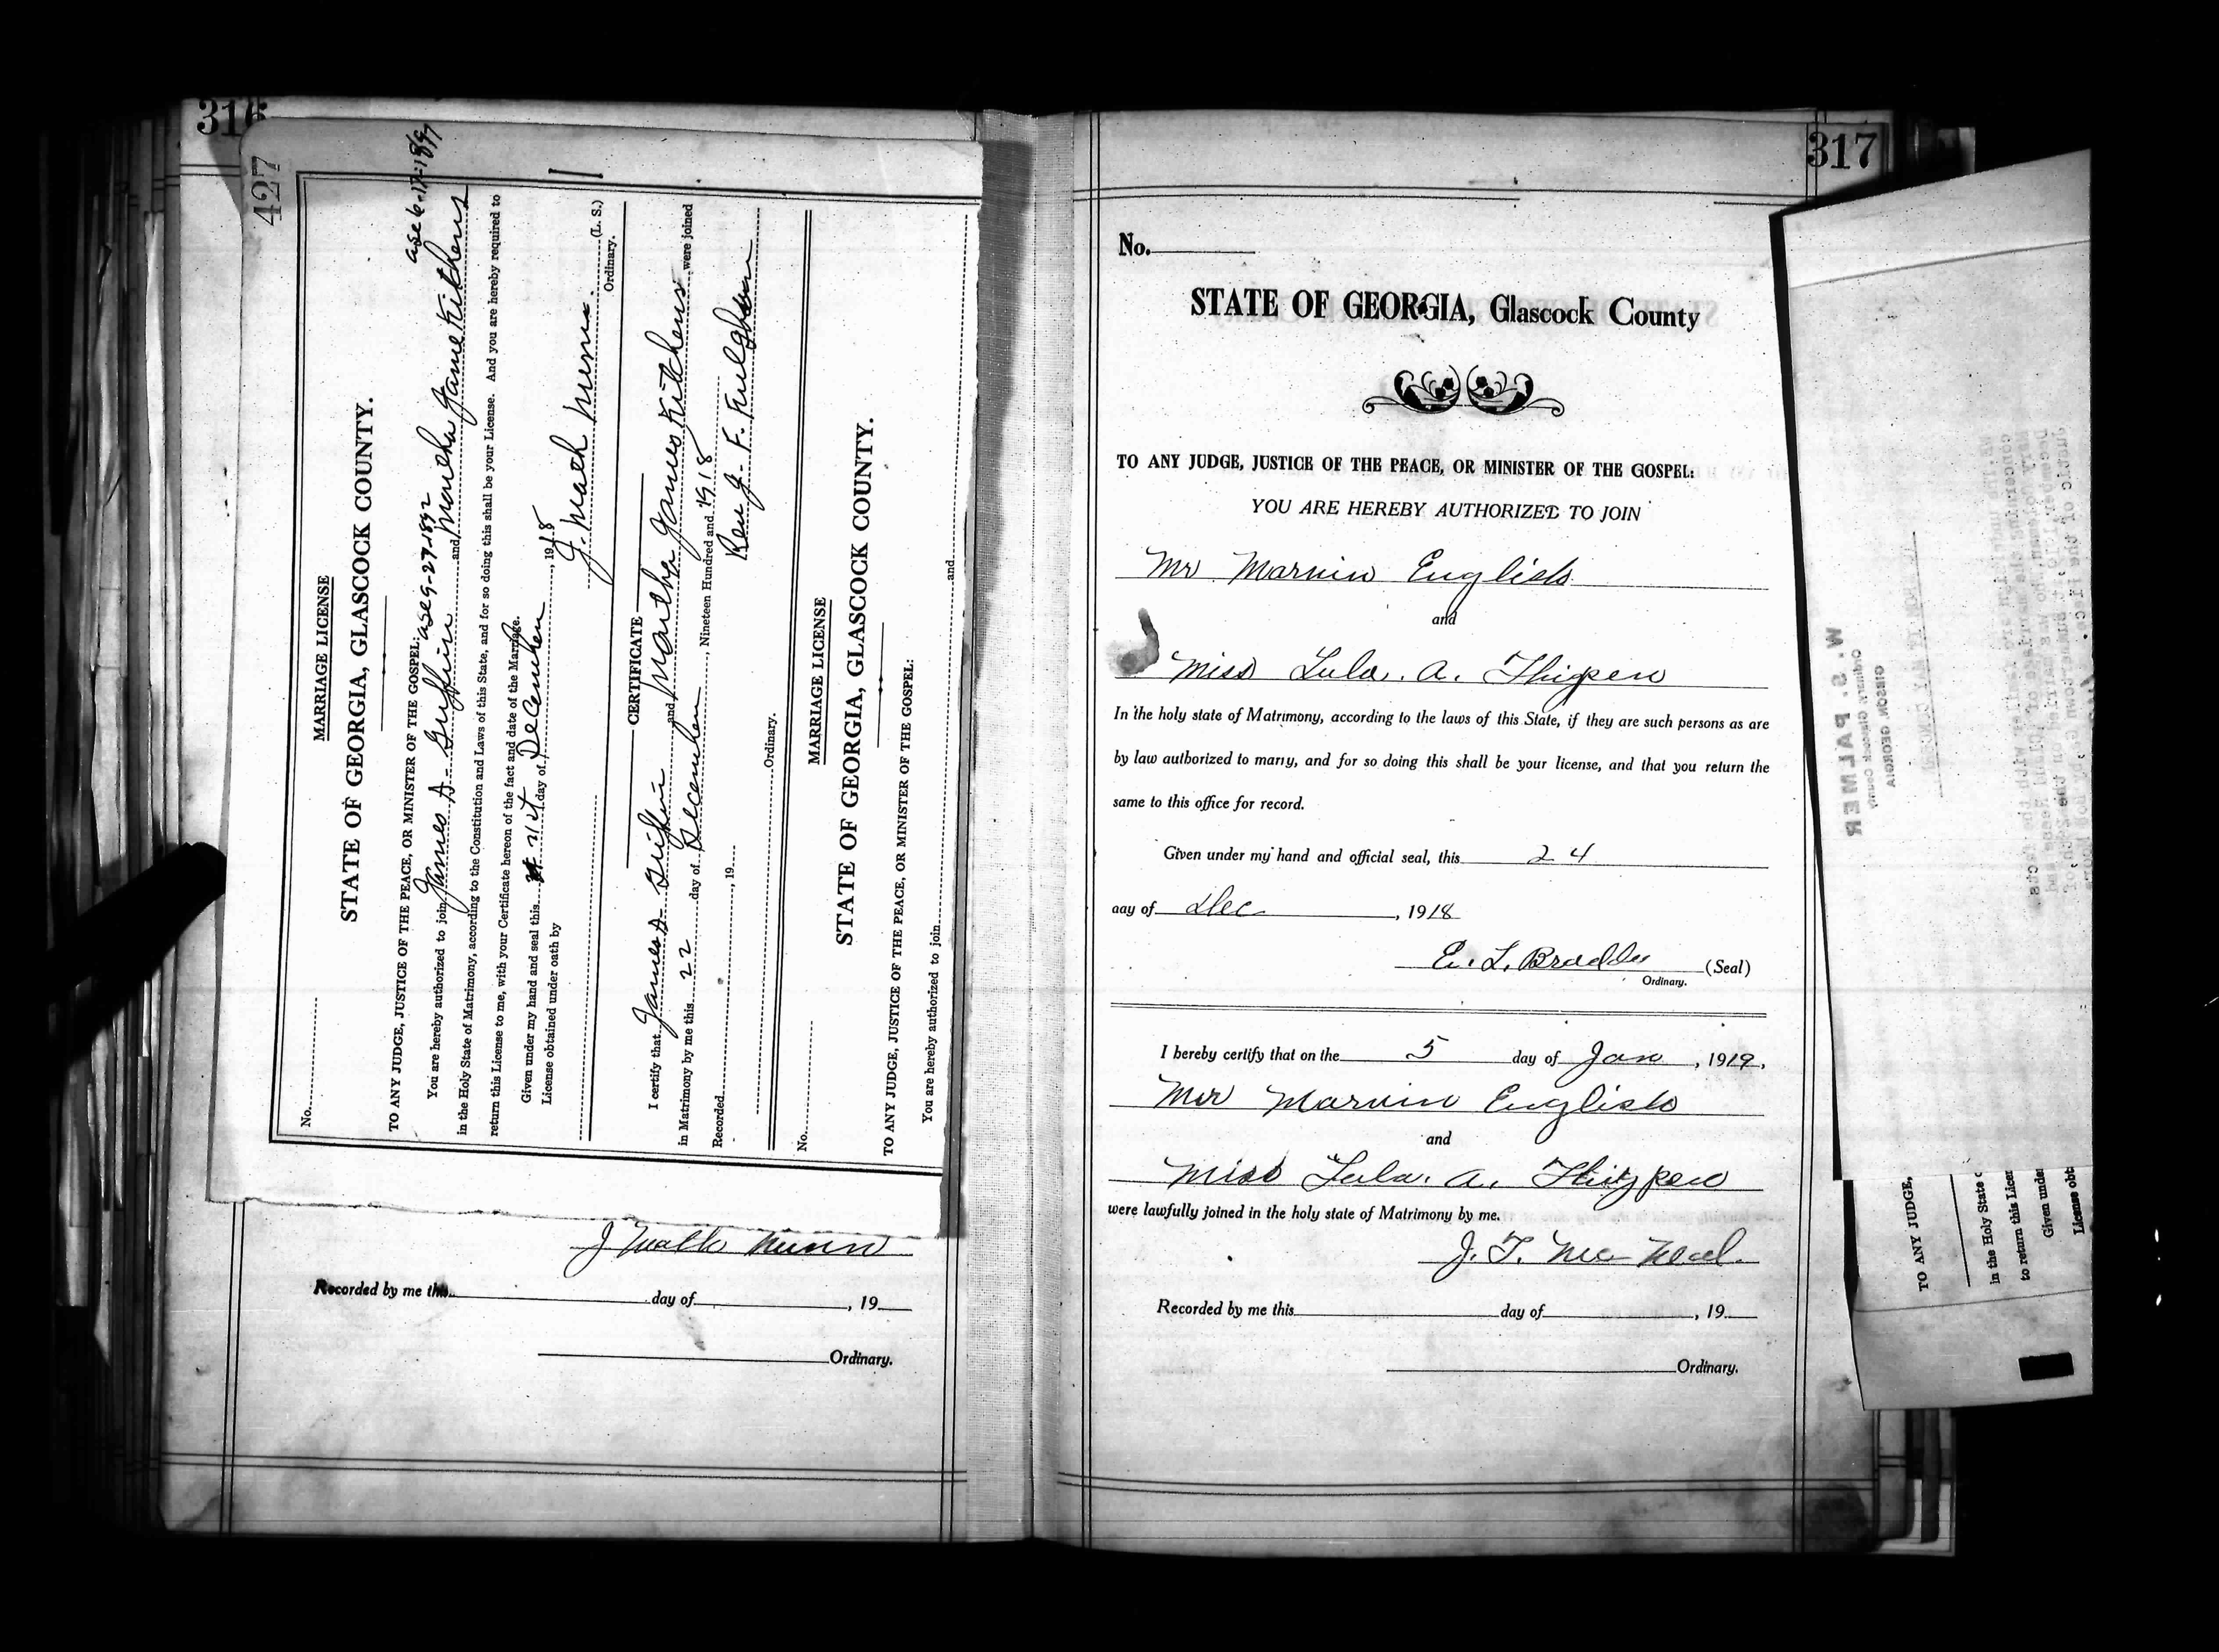 316
427
MARRIAGE LICENSE
No.
STATE OF GEORGIA, GLASCOCK COUNTY.
TO ANY JUDGE, JUSTICE OF THE PEACE, OR MINISTER OF THE GOSPEL:
age 9-27-1892
age 6-17-1897
You are hereby authorized to join James A. Griffin and Martha Jane Kitchens
in the Holy State of Matrimony, according to the Constitution and Laws of this State, and for so doing this shall be your License. And you are hereby required to
return this License to me, with your Certificate hereon of the fact and date of the Marriage.
Given under my hand and seal this 21st day of December, 1918
License obtained under oath by
J. Math Nunn (L. S.)
Ordinary.
CERTIFICATE
I certify that James A. Griffin and Martha Janes Kitchens were joined
in Matrimony by me this 22 day of December, Nineteen Hundred and 1918
Recorded , 19
Rev J. F. Fulghum
Ordinary.
MARRIAGE LICENSE
No.
STATE OF GEORGIA, GLASCOCK COUNTY.
TO ANY JUDGE, JUSTICE OF THE PEACE, OR MINISTER OF THE GOSPEL:
You are hereby authorized to join and
J Math Nunn
Recorded by me this day of , 19
Ordinary.
317
No.
STATE OF GEORGIA, Glascock County
TO ANY JUDGE, JUSTICE OF THE PEACE, OR MINISTER OF THE GOSPEL:
YOU ARE HEREBY AUTHORIZED TO JOIN
Mr Marvin English
and
Miss Lula. A. Thigpen
In the holy state of Matrimony, according to the laws of this State, if they are such persons as are
by law authorized to marry, and for so doing this shall be your license, and that you return the
same to this office for record.
Given under my hand and official seal, this 24
day of Dec , 1918
E. L. Braddy (Seal)
Ordinary.
I hereby certify that on the 5 day of Jan, 1919,
Mr Marvin English
and
Miss Lula. A. Thigpen
were lawfully joined in the holy state of Matrimony by me.
J. T. McNeal.
Recorded by me this day of , 19
Ordinary.
W. S. PALMER
Ordinary Glascock County
GIBSON, GEORGIA
TO ANY JUDGE,
in the Holy State
to return this Licen
Given unde
License obt